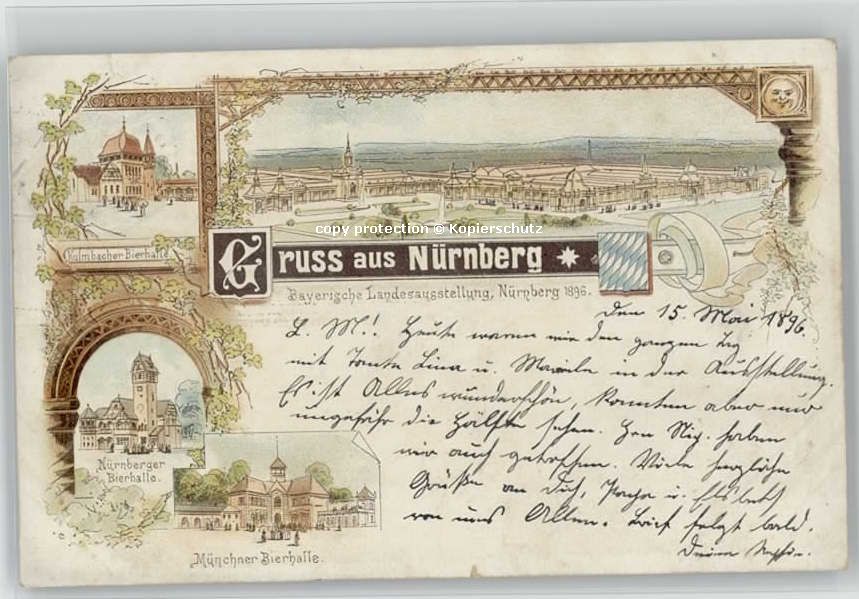 copy protection © Kopierschutz
Kulmbacher Bierhalle
Gruss aus Nürnberg
Bayerische Landesausstellung, Nürnberg 1896.
Den 15. Mai 1896.
L. M.! Heute waren wir den ganzen Tag
mit Tante Lina u. in der Ausstellung.
Es ist Alles wunderschön, konnten aber nur
ungefähr die Hälfte sehen. Hrn haben
wir auch getroffen. Viele herzliche
Grüße an Dich, Papa u. Elsbeth
von uns Allen. Brief folgt bald.
Deine
Nürnberger
Bierhalle.
Münchner Bierhalle.